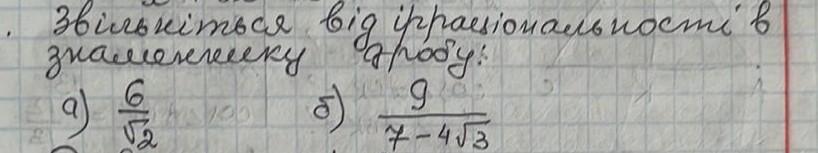 . Звільніться від ірраціональності в
знаменнику дробу:
а) 6/√2 б) 9/(7-4√3)